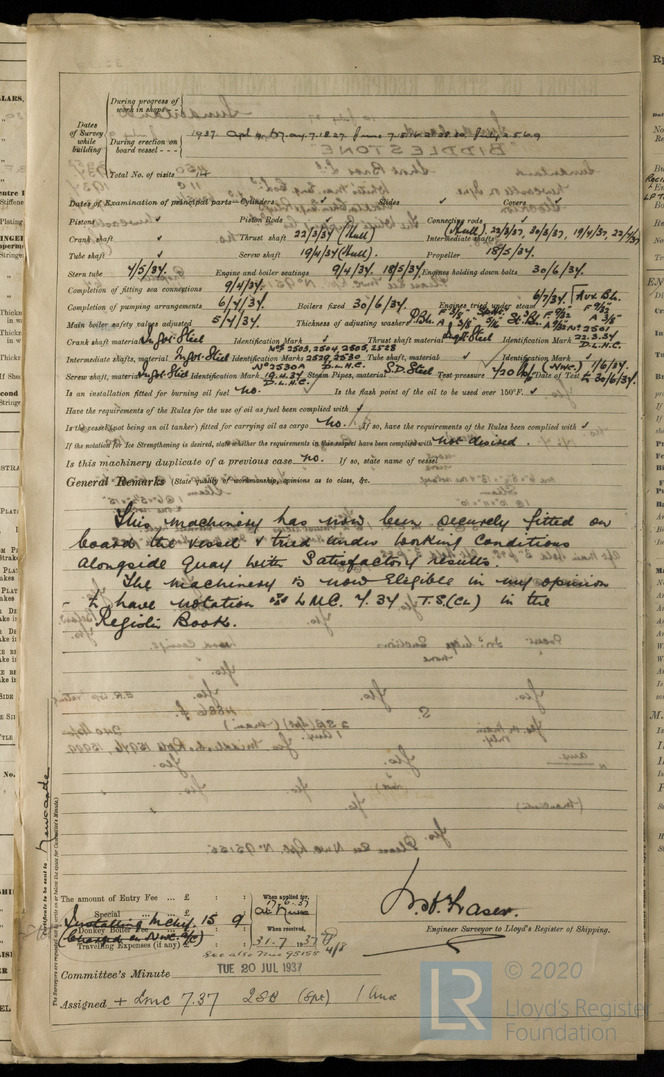 During progress of
work in shops - -
Dates
of Survey
while
building
During erection on
board vessel - - -
1937. Apl 4. May. 7. 18. 27. June 7. 15. 16. 21. 28. 30. July 2. 5. 6. 9
Total No. of visits 14
Dates of Examination of principal parts—Cylinders ✓ Slides ✓ Covers ✓
Pistons ✓ Piston Rods ✓ Connecting rods ✓
Crank shaft ✓ Thrust shaft 22/3/37 (Hull) Intermediate shafts (Hull). 22/3/37, 30/3/37, 19/4/37, 22/4/37
Tube shaft ✓ Screw shaft 19/4/37 (Hull). Propeller 18/5/37.
Stern tube 4/5/37. Engine and boiler seatings 9/4/37. 18/5/37. Engines holding down bolts 30/6/37.
Completion of fitting sea connections 9/4/37.
Completion of pumping arrangements 6/7/37. Boilers fixed 30/6/37. Engines tried under steam 6/7/37.
Main boiler safety valves adjusted 5/7/37. Thickness of adjusting washers
Crank shaft material Ingot Steel Identification Mark ✓ Thrust shaft material Ingot Steel Identification Mark No 2501 22.3.37 D.L.H.C.
Intermediate shafts, material Ingot Steel Identification Marks Nos 2503, 2504, 2505, 2528 2529, 2530 D.L.H.C. Tube shaft, material ✓ Identification Mark ✓
Screw shaft, material Ingot Steel Identification Mark No 2530A 19.4.37 D.L.H.C. Steam Pipes, material S.D. Steel Test pressure 420 lbs Date of Test (Nwc.) 1/6/37. to 30/6/37.
Is an installation fitted for burning oil fuel no. Is the flash point of the oil to be used over 150°F. ✓
Have the requirements of the Rules for the use of oil as fuel been complied with ✓
Is the vessel (not being an oil tanker) fitted for carrying oil as cargo no. If so, have the requirements of the Rules been complied with ✓
If the notation for Ice Strengthening is desired, state whether the requirements in this respect have been complied with not desired.
Is this machinery duplicate of a previous case no. If so, state name of vessel
General Remarks (State quality of workmanship, opinions as to class, &c.
This machinery has now been securely fitted on
board the vessel & tried under working conditions
alongside quay with satisfactory results.
The machinery is now eligible in my opinion
to have notation LMC. 7.37 T.S.(CL) in the
Register Book.
Newcastle
The amount of Entry Fee ... £ : :
Special ... ... £ : :
Installing Mchy. 15 9
Donkey Boiler Fee ... £
(Charged on Nwc. a/c)
Travelling Expenses (if any) £ : :
When applied for,
At Nwc
When received,
31.7.1937
4/8
See also Nwc 95155
Engineer Surveyor to Lloyd's Register of Shipping.
Committee's Minute TUE 20 JUL 1937
Assigned + Lmc 7.37 2SB (Spt) 1 Aux
© 2020
LR
Lloyd's Register
Foundation